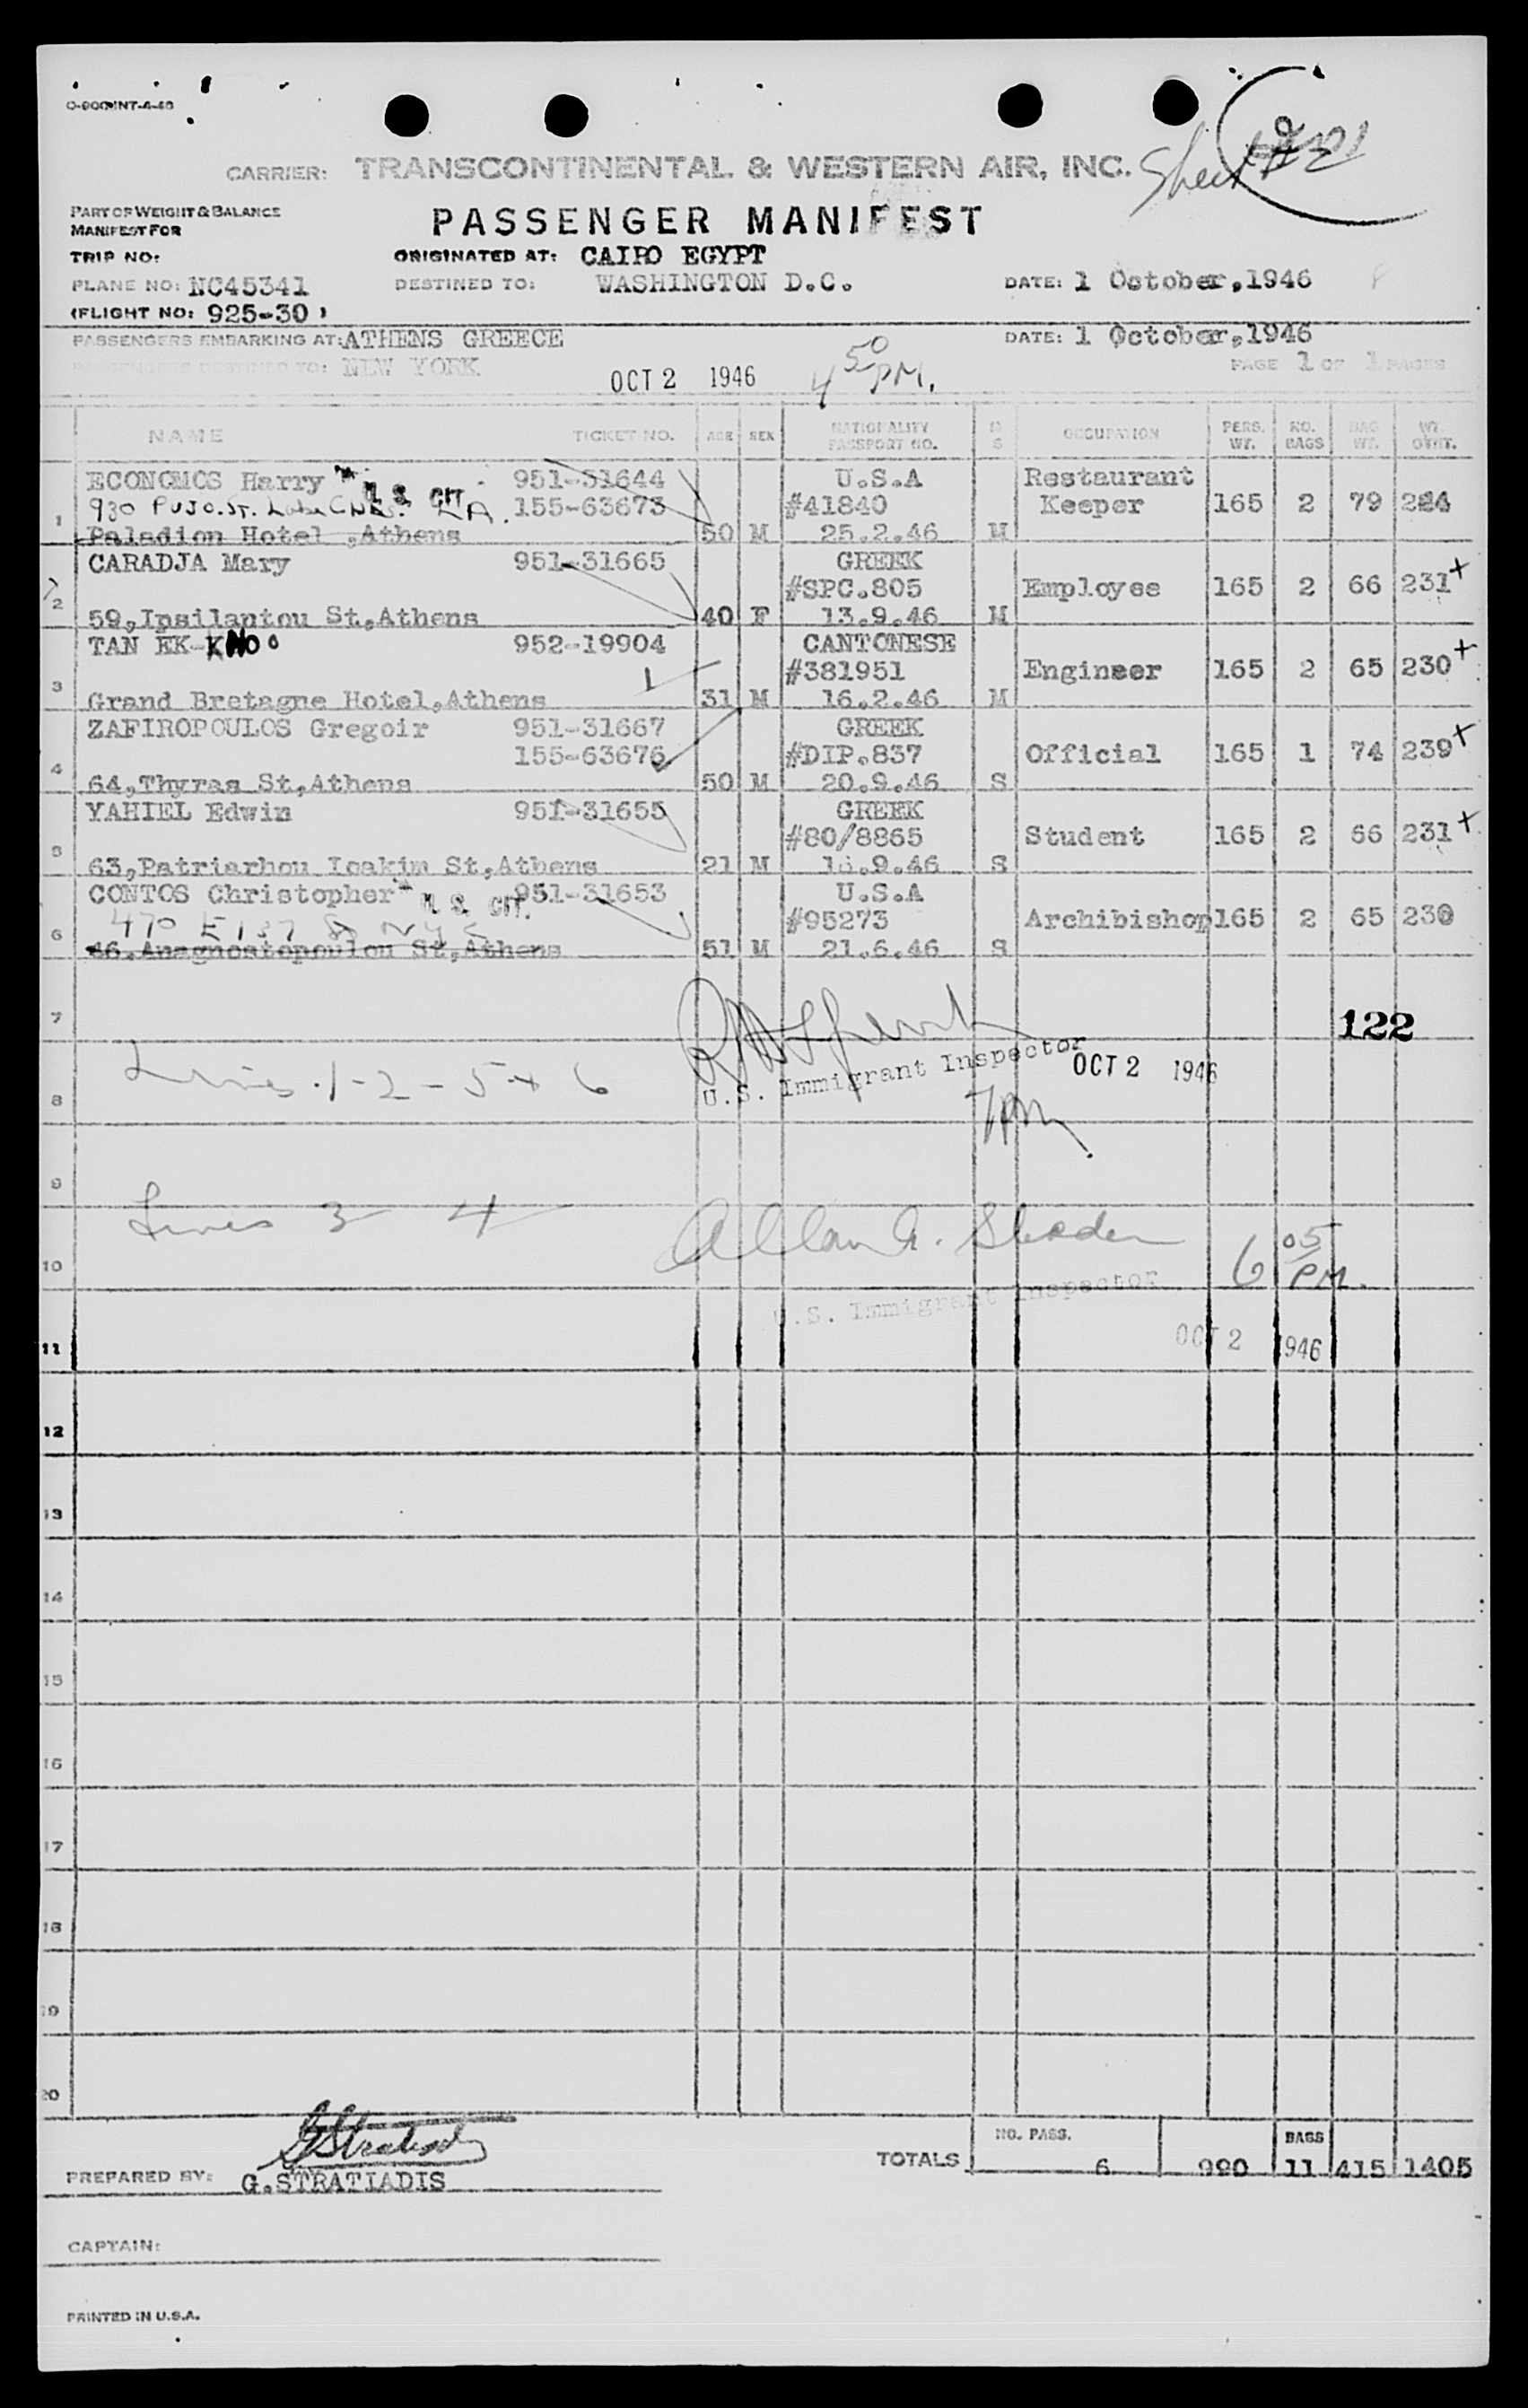 O-900-INT-4-46
CARRIER: TRANSCONTINENTAL & WESTERN AIR, INC.
Sheet #2
PART OF WEIGHT & BALANCE
MANIFEST FOR
PASSENGER MANIFEST
TRIP NO:
ORIGINATED AT: CAIRO EGYPT
PLANE NO: NC45341
DESTINED TO: WASHINGTON D.C.
DATE: 1 October,1946
(FLIGHT NO: 925-30 )
PASSENGERS EMBARKING AT: ATHENS GREECE
DATE: 1 October,1946
PASSENGERS DESTINED TO: NEW YORK
OCT 2 1946
4 50 PM.
PAGE 1 OF 1 PAGES
NAME TICKET NO. AGE SEX NATIONALITY PASSPORT NO. M S OCCUPATION PERS. WT. NO. BAGS BAG WT. WT. OVHT.
ECONOMOS Harry U.S. CIT. 951-31644 U.S.A Restaurant
1 930 PUJO. ST. Lake Chas. LA. 155-63673 #41840 Keeper 165 2 79 224
Paladion Hotel ,Athens 50 M 25.2.46 M
CARADJA Mary 951-31665 GREEK
2 #SPC.805 Employee 165 2 66 231 +
59,Ipsilantou St,Athens 40 F 13.9.46 M
TAN EK-KHOO 952-19904 CANTONESE
3 #381951 Engineer 165 2 65 230 +
Grand Bretagne Hotel,Athens 31 M 16.2.46 M
ZAFIROPOULOS Gregoir 951-31667 GREEK
4 155-63676 #DIP.837 Official 165 1 74 239 +
64,Thyras St,Athens 50 M 20.9.46 S
YAHIEL Edwin 951-31655 GREEK
5 #80/8865 Student 165 2 66 231 +
63,Patriarhou Ioakim St,Athens 21 M 16.9.46 S
CONTOS Christopher U.S. CIT. 951-31653 U.S.A
6 470 E 137 St NYC #95273 Archibishop 165 2 65 230
46,Anagnostopoulou St,Athens 51 M 21.6.46 S
7
122
Lines 1-2-5+6
U.S. Immigrant Inspector
OCT 2 1946
8
7 PM
9
Lines 3 4
Allan
6 05 PM.
10
U.S. Immigrant Inspector
OCT 2 1946
11
12
13
14
15
16
17
18
19
20
GStratiadis
TOTALS NO. PASS. 6 990 BAGS 11 415 1405
PREPARED BY: G.STRATIADIS
CAPTAIN:
PRINTED IN U.S.A.